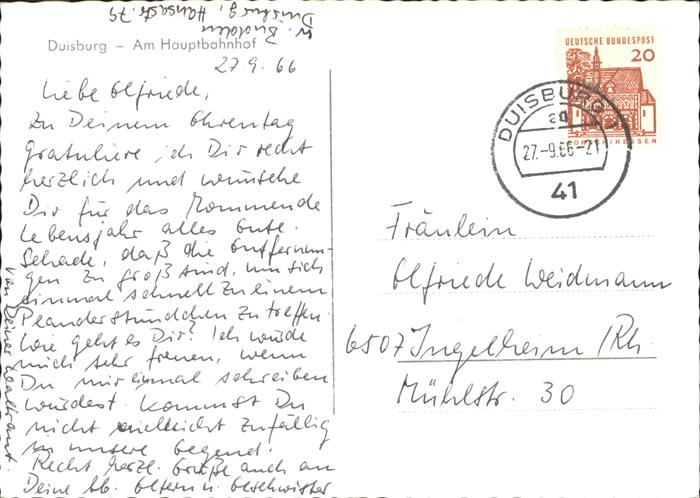 Duisburg, Hansastr. 79
Duisburg – Am Hauptbahnhof
27.9.66
Liebe Elfriede,
Zu Deinem Ehrentag
gratuliere ich Dir recht
herzlich und wünsche
Dir für das Kommende
Lebensjahr alles Gute.
Schade, daß die Entfernun-
gen zu groß sind, um sich
einmal schnell zu einem
Plauderstündchen zu treffen.
Wie geht es Dir? Ich würde
mich sehr freuen, wenn
Du mir einmal schreiben
würdest. Kommst Du
nicht vielleicht zufällig
in unsere Gegend.
Recht herzl. Grüße auch an
Deine lb. Eltern u. Geschwister
von Deiner
DEUTSCHE BUNDESPOST
20
LORSCH/HESSEN
DUISBURG 1
ad
27.-9.66-21
41
Fräulein
Elfriede Weidmann
6507 Ingelheim /Rh.
Mühlstr. 30